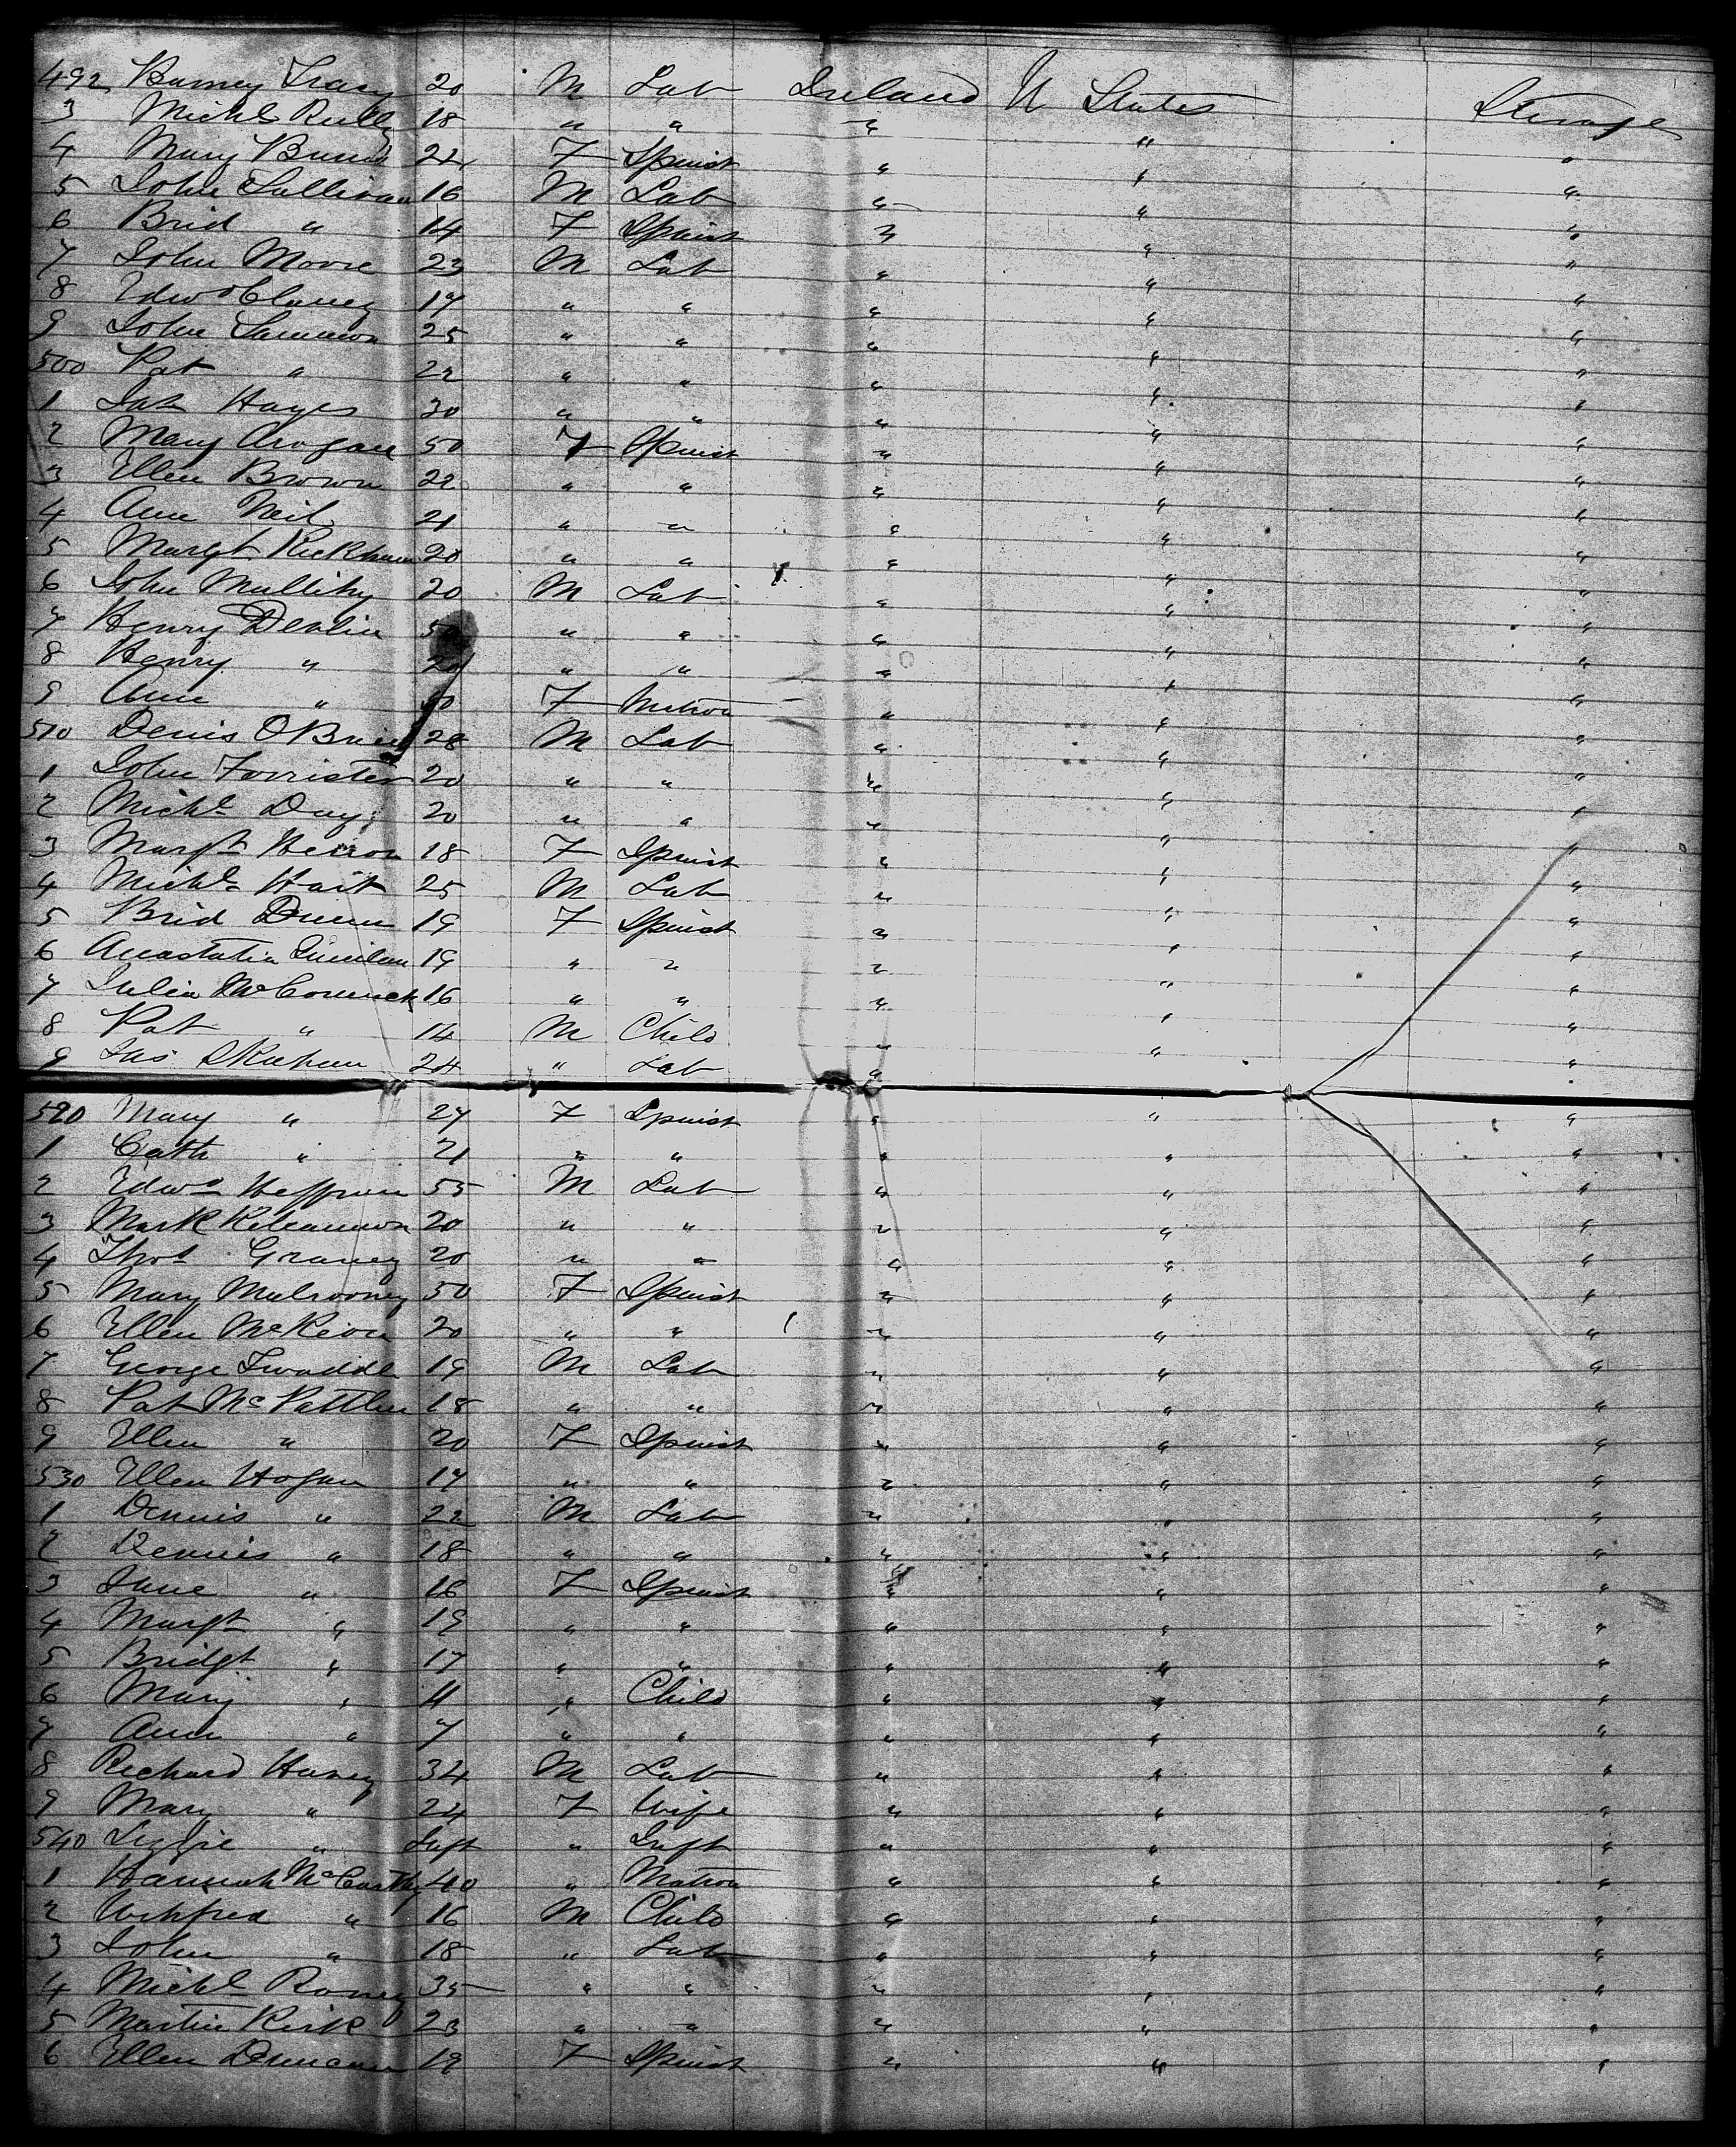 492 Barney Tracy 20 M Lab Ireland U States Steerage
3 Michl Reilly 18 " " " " "
4 Mary 22 F Spinst " " "
5 John Sullivan 16 M Lab " " "
6 Brid " 14 F Spinst " " "
7 John Moore 23 M Lab " " "
8 Edwd Clancy 17 " " " " "
9 John Sammon 25 " " " " "
500 Pat " 22 " " " " "
1 Hayes 20 " " " " "
2 Mary Arogan 50 F Spinst " " "
3 Ellen Brown 22 " " " " "
4 Ann Neil 21 " " " " "
5 Margt Kickham 20 " " " " "
6 John Mullihy 20 M Lab " " "
7 Henry Devlin " " " " "
8 Henry " 20 " " " " "
9 Ann " F Matron " " "
510 Denis OBrien 28 M Lab " " "
1 John Forrister 20 " " " " "
2 Michl Day 20 " " " " "
3 Margt Herron 18 F Spinst " " "
4 Michl Hait 25 M Lab " " "
5 Brid Dunn 19 F Spinst " " "
6 Anastatia Quinlan 19 " " " " "
7 Julia McCormick 16 " " " " "
8 Pat " 14 M Child " " "
9 Jas Skahan 24 " Lab " " "
520 Mary " 27 F Spinst " " "
1 Cath " 21 " " " " "
2 Edwd Heffron 55 M Lab " " "
3 Mark Kilcannon 20 " " " " "
4 Thos Graney 20 " " " " "
5 Mary Mulrooney 50 F Spinst " " "
6 Ellen McKeon 20 " " " " "
7 George Twaddle 19 M Lab " " "
8 Pat McPattlin 18 " " " " "
9 Ellen " 20 F Spinst " " "
530 Ellen Hogan 17 " " " " "
1 Dennis " 22 M Lab " " "
2 Dennis " 18 " " " " "
3 Jane " 16 F Spinst " " "
4 Margt " 19 " " " " "
5 Bridgt " 17 " " " " "
6 Mary " 11 " Child " " "
7 Ann " 7 " " " " "
8 Richard Haney 34 M Lab " " "
9 Mary " 24 F Wife " " "
540 Lizzie " Inft " Inft " " "
1 Hannah McCarthy 40 " Matron " " "
2 " 16 M Child " " "
3 John " 18 " Lab " " "
4 Michl Roney 35 " " " " "
5 Martin Kirk 23 " " " " "
6 Ellen Duncan 19 F Spinst " " "